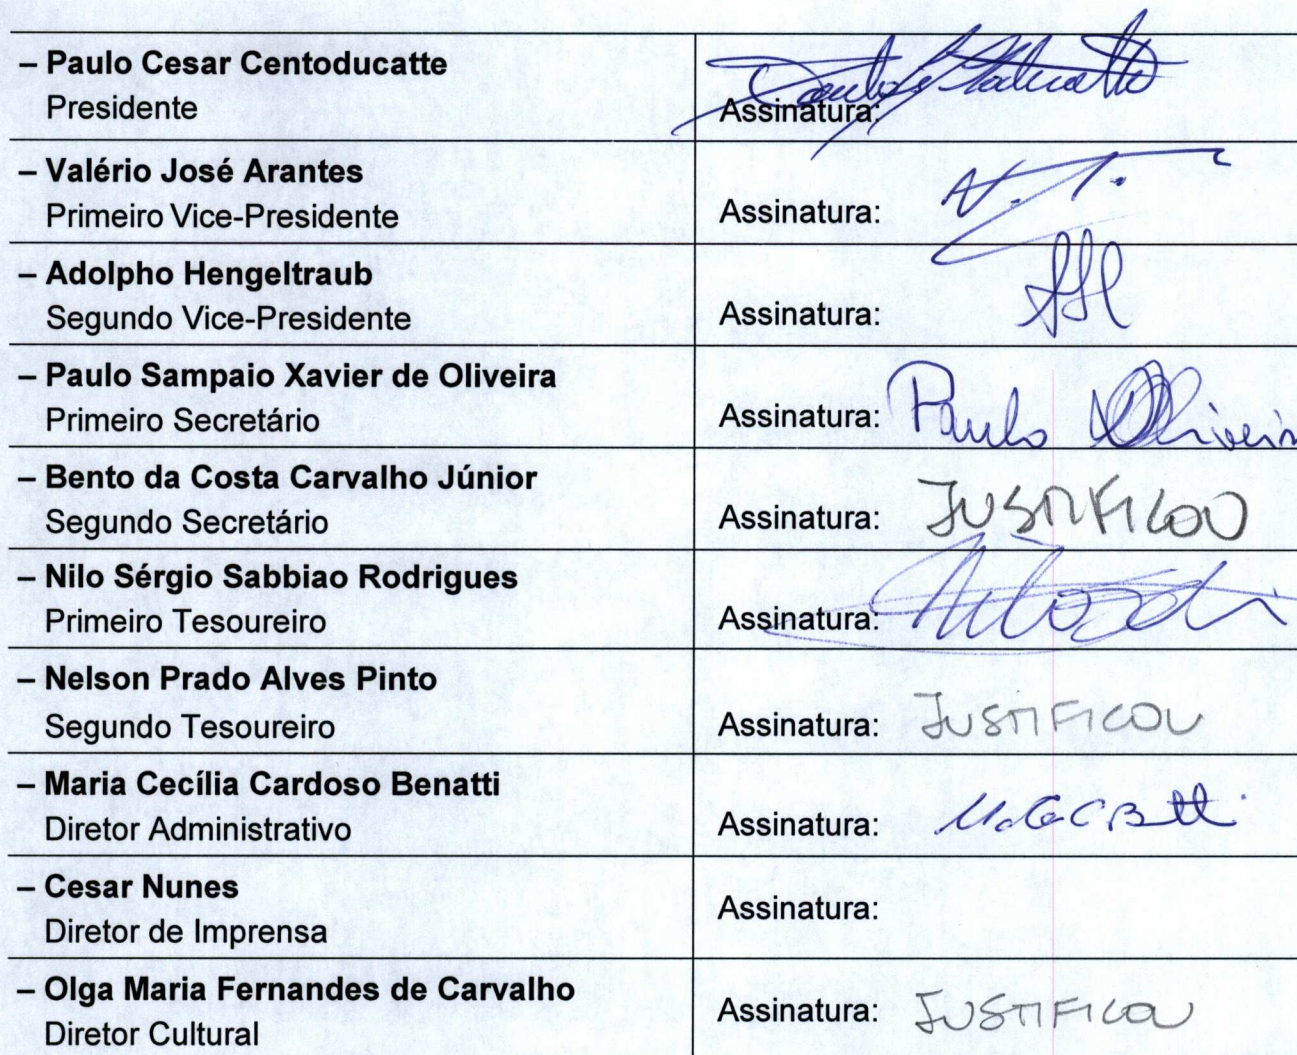 – Paulo Cesar Centoducatte
Presidente
Assinatura:
– Valério José Arantes
Primeiro Vice-Presidente
Assinatura:
– Adolpho Hengeltraub
Segundo Vice-Presidente
Assinatura:
– Paulo Sampaio Xavier de Oliveira
Primeiro Secretário
Assinatura: Paulo
– Bento da Costa Carvalho Júnior
Segundo Secretário
Assinatura: JUSTIFICOU
– Nilo Sérgio Sabbiao Rodrigues
Primeiro Tesoureiro
Assinatura:
– Nelson Prado Alves Pinto
Segundo Tesoureiro
Assinatura: JUSTIFICOU
– Maria Cecília Cardoso Benatti
Diretor Administrativo
Assinatura:
– Cesar Nunes
Diretor de Imprensa
Assinatura:
– Olga Maria Fernandes de Carvalho
Diretor Cultural
Assinatura: JUSTIFICOU